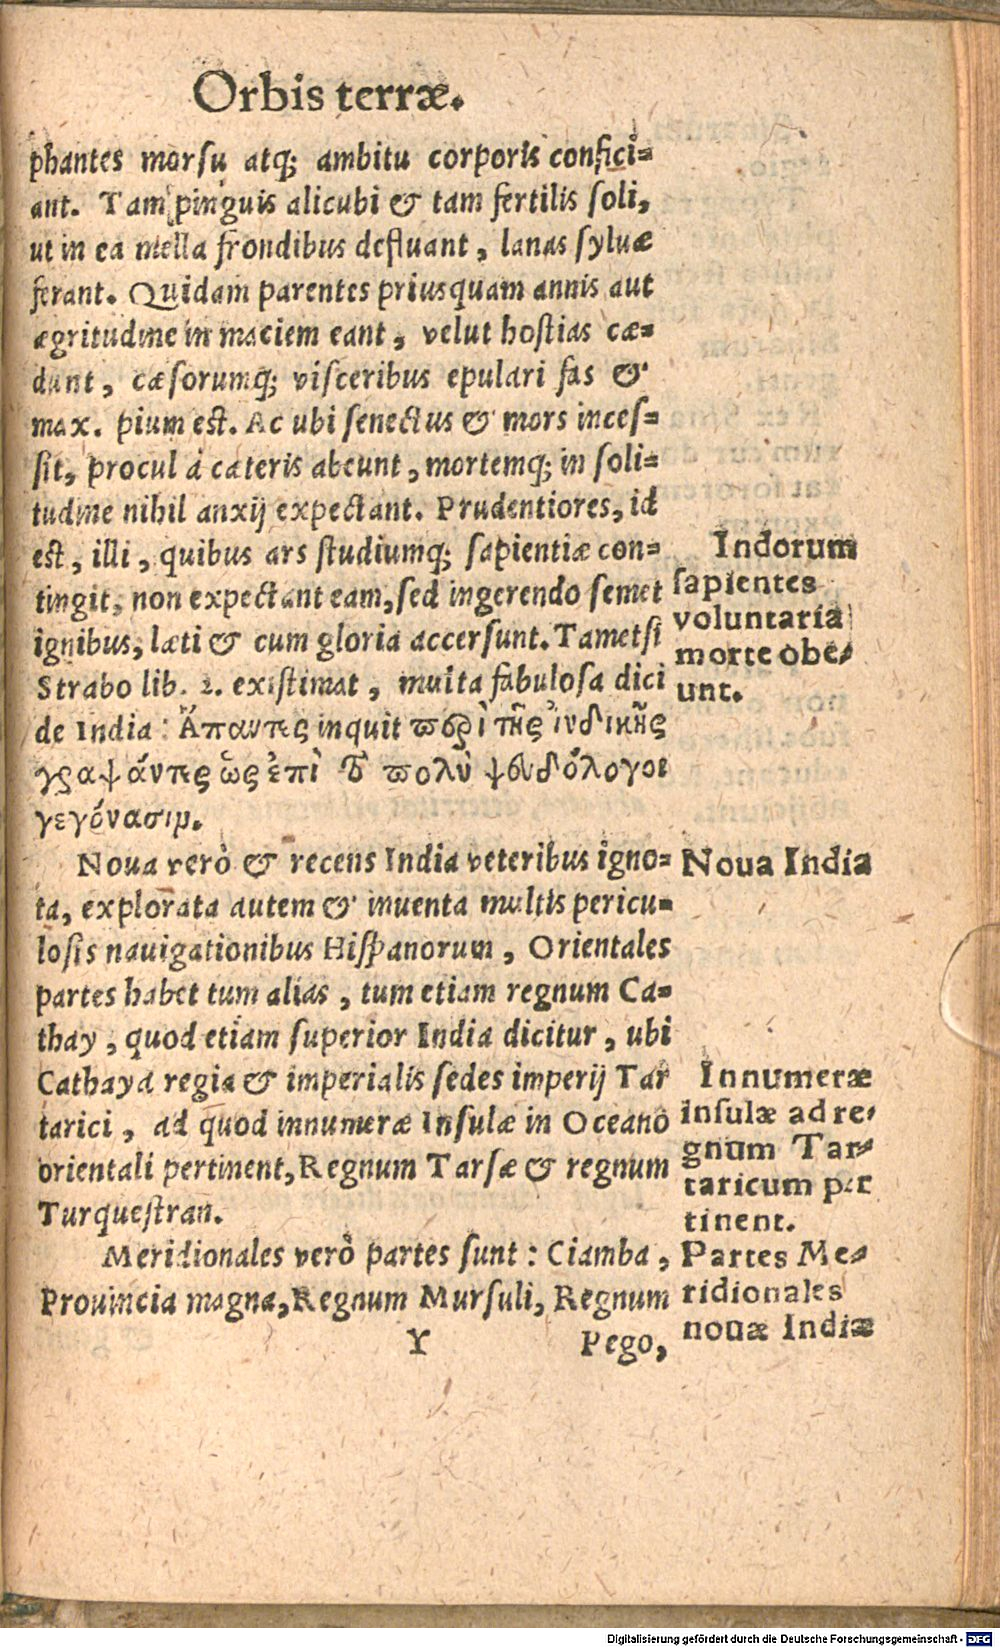 Orbis terræ.
phantes morsu atq; ambitu corporis confici=
ant. Tam pinguis alicubi & tam fertilis soli,
ut in ea mella frondibus defluant, lanas syluæ
ferant. Quidam parentes priusquam annis aut
ægritudine in maciem eant, velut hostias cæ=
dunt, cæsorumq; visceribus epulari fas &
max. pium est. Ac ubi senectus & mors inces=
sit, procul à cæteris abeunt, mortemq; in soli=
tudine nihil anxij expectant. Prudentiores, id
est, illi, quibus ars studiumq; sapientiæ con=
tingit, non expectant eam, sed ingerendo semet
ignibus, læti & cum gloria accersunt. Tametsi
Strabo lib. 2. existimat, multa fabulosa dici
de India: Ἅπαντες inquit περὶ τῆς ἰνδικῆς
γραψάντες ὡς ἐπὶ τὸ πολὺ ψευδόλογοι
γεγόνασιν.
Indorum
sapientes
voluntaria
morte obe=
unt.
Noua verò & recens India veteribus igno=
ta, explorata autem & inuenta multis pericu=
losis nauigationibus Hispanorum, Orientales
partes habet tum alias, tum etiam regnum Ca=
thay, quod etiam superior India dicitur, ubi
Cathaya regia & imperialis sedes imperij Tar
tarici, ad quod innumeræ Insulæ in Oceano
orientali pertinent, Regnum Tarsæ & regnum
Turquestran.
Noua India
Innumeræ
insulæ ad re=
gnum Tar=
taricum per
tinent.
Meridionales verò partes sunt: Ciamba,
Prouincia magna, Regnum Mursuli, Regnum
Partes Me=
ridionales
nouæ Indiæ
Y
Pego,
Digitalisierung gefördert durch die Deutsche Forschungsgemeinschaft - DFG